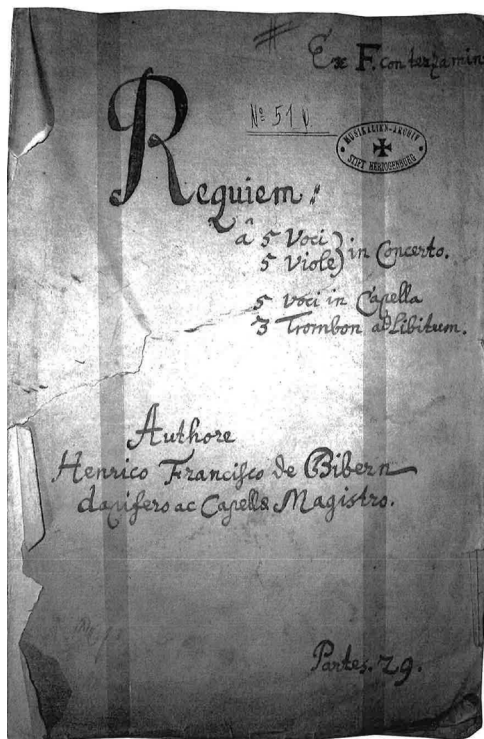 Ex F. con terza min
Nº 51 V.
MUSIKALIEN-ARCHIV
STIFT HERZOGENBURG
Requiem:
â 5 Voci
5 Viole } in Concerto.
5 Voci in Capella
3 Trombon ad Libitum.
Authore
Henrico Francisco de Bibern
dapifero ac Capellæ Magistro.
Partes. 29.